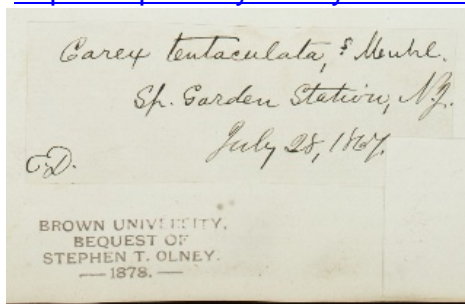 Carex tentaculata, Muhl.
Sp. Garden Station, N.J.
July 28, 1867.
C.D.
BROWN UNIVERSITY,
BEQUEST OF
STEPHEN T. OLNEY.
— 1878. —